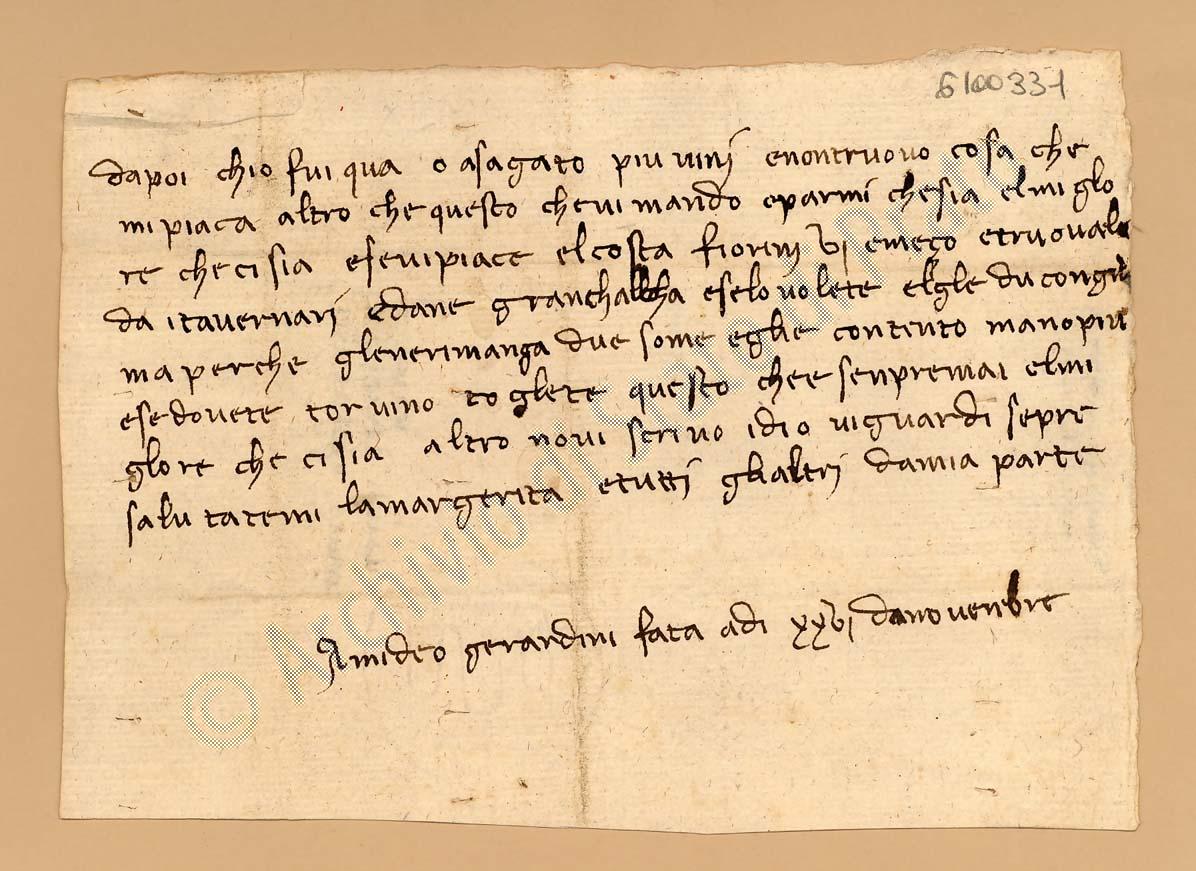 6100331
dapoi chio fui qua o asagato piu vinj enontruovo cosa che
mi piaca altro che questo chevi mando eparmi chesia elmiglo
re checi sia esevipiace elcosta fiorinj vj emeço etruoval
da itavernarj edane eselovolete elgle du
ma perche glenerimanga due some eglie contento manopiu
esedovete tor vino toglete questo chee senpremai elmi
glore che ci sia altro novi scrivo idio viguardi sepre
salutatemi lamargerita etuttj glialtrj damia parte
Amideo gerardini fata adi xxvj danovenbre
© Archivio di Stato di Prato